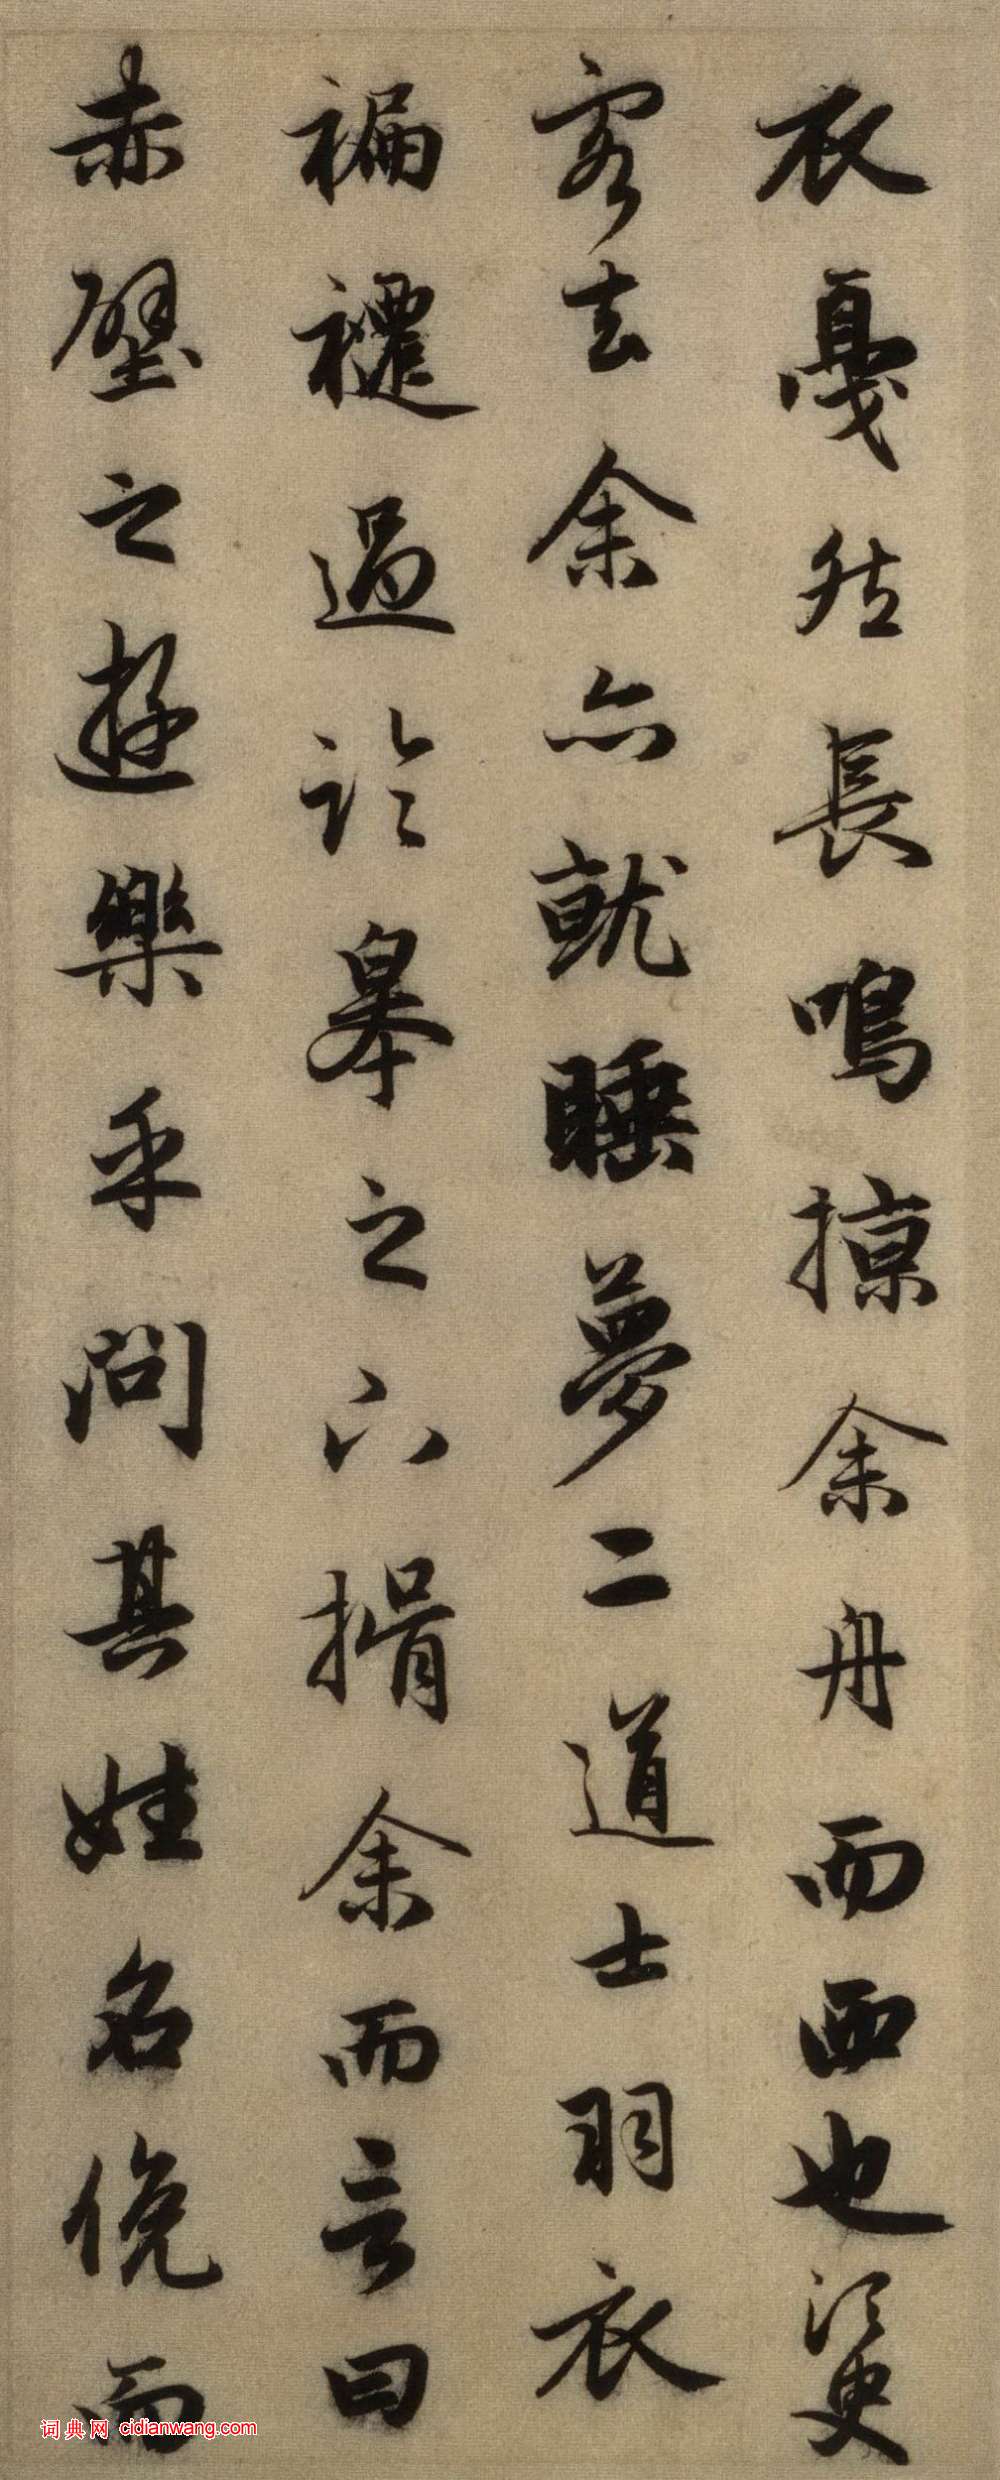 衣戛然長鳴掠余舟而西也須臾
客去余亦就睡夢二道士羽衣
褊褼過臨皋之下揖余而言曰
赤壁之遊樂乎問其姓名俛而
词典网 cidianwang.com